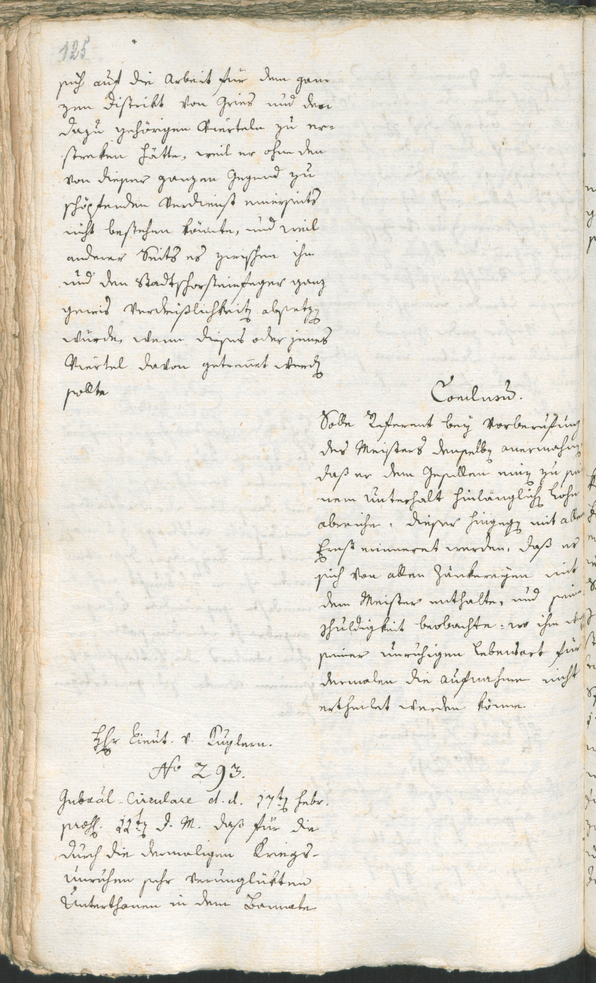 125
sich auf die Arbeit für dem gan-
zen Distrikt von Gries und den
dazu gehörigen Vierteln zu er-
streken hätte, weil er ohne den
von dieser ganzen Gegend zu
schöpfenden Verdienst einerseits
nicht bestehen könnte, und weil
anderer Seits es zwischen ihm
und den Stadtschorsteinfeger ganz
gewis Verdrießlichkeiten absetzen
würde, wenn dieses oder jenes
Viertel davon getrennt werden
sollte
Conclusum.
Solle Referent bey Vorberufung
des Meisters denselben anermahnen
daß er dem Gesellen einen zu
nem Unterhalt hinlänglichen Lohn
abreiche, dieser hingegen mit allem
Ernst erinneret werden, daß er
sich von allen Zänkereyen mit
dem Meister enthalte, und seine
Schuldigkeit beobachte, wo ihm
seiner unruhigen Lebensart für
dermalen die Aufnahme nicht
ertheilet werden könne.
Hr Lieut. v. Kuglern.
No 293.
Gubràl-Circulare d. d. 17ten Febr.
praes. 22ten d. M. daß für die
durch die dermaligen Kriegs-
unruhen sehr verunglükten
Unterthanen in dem Bannate